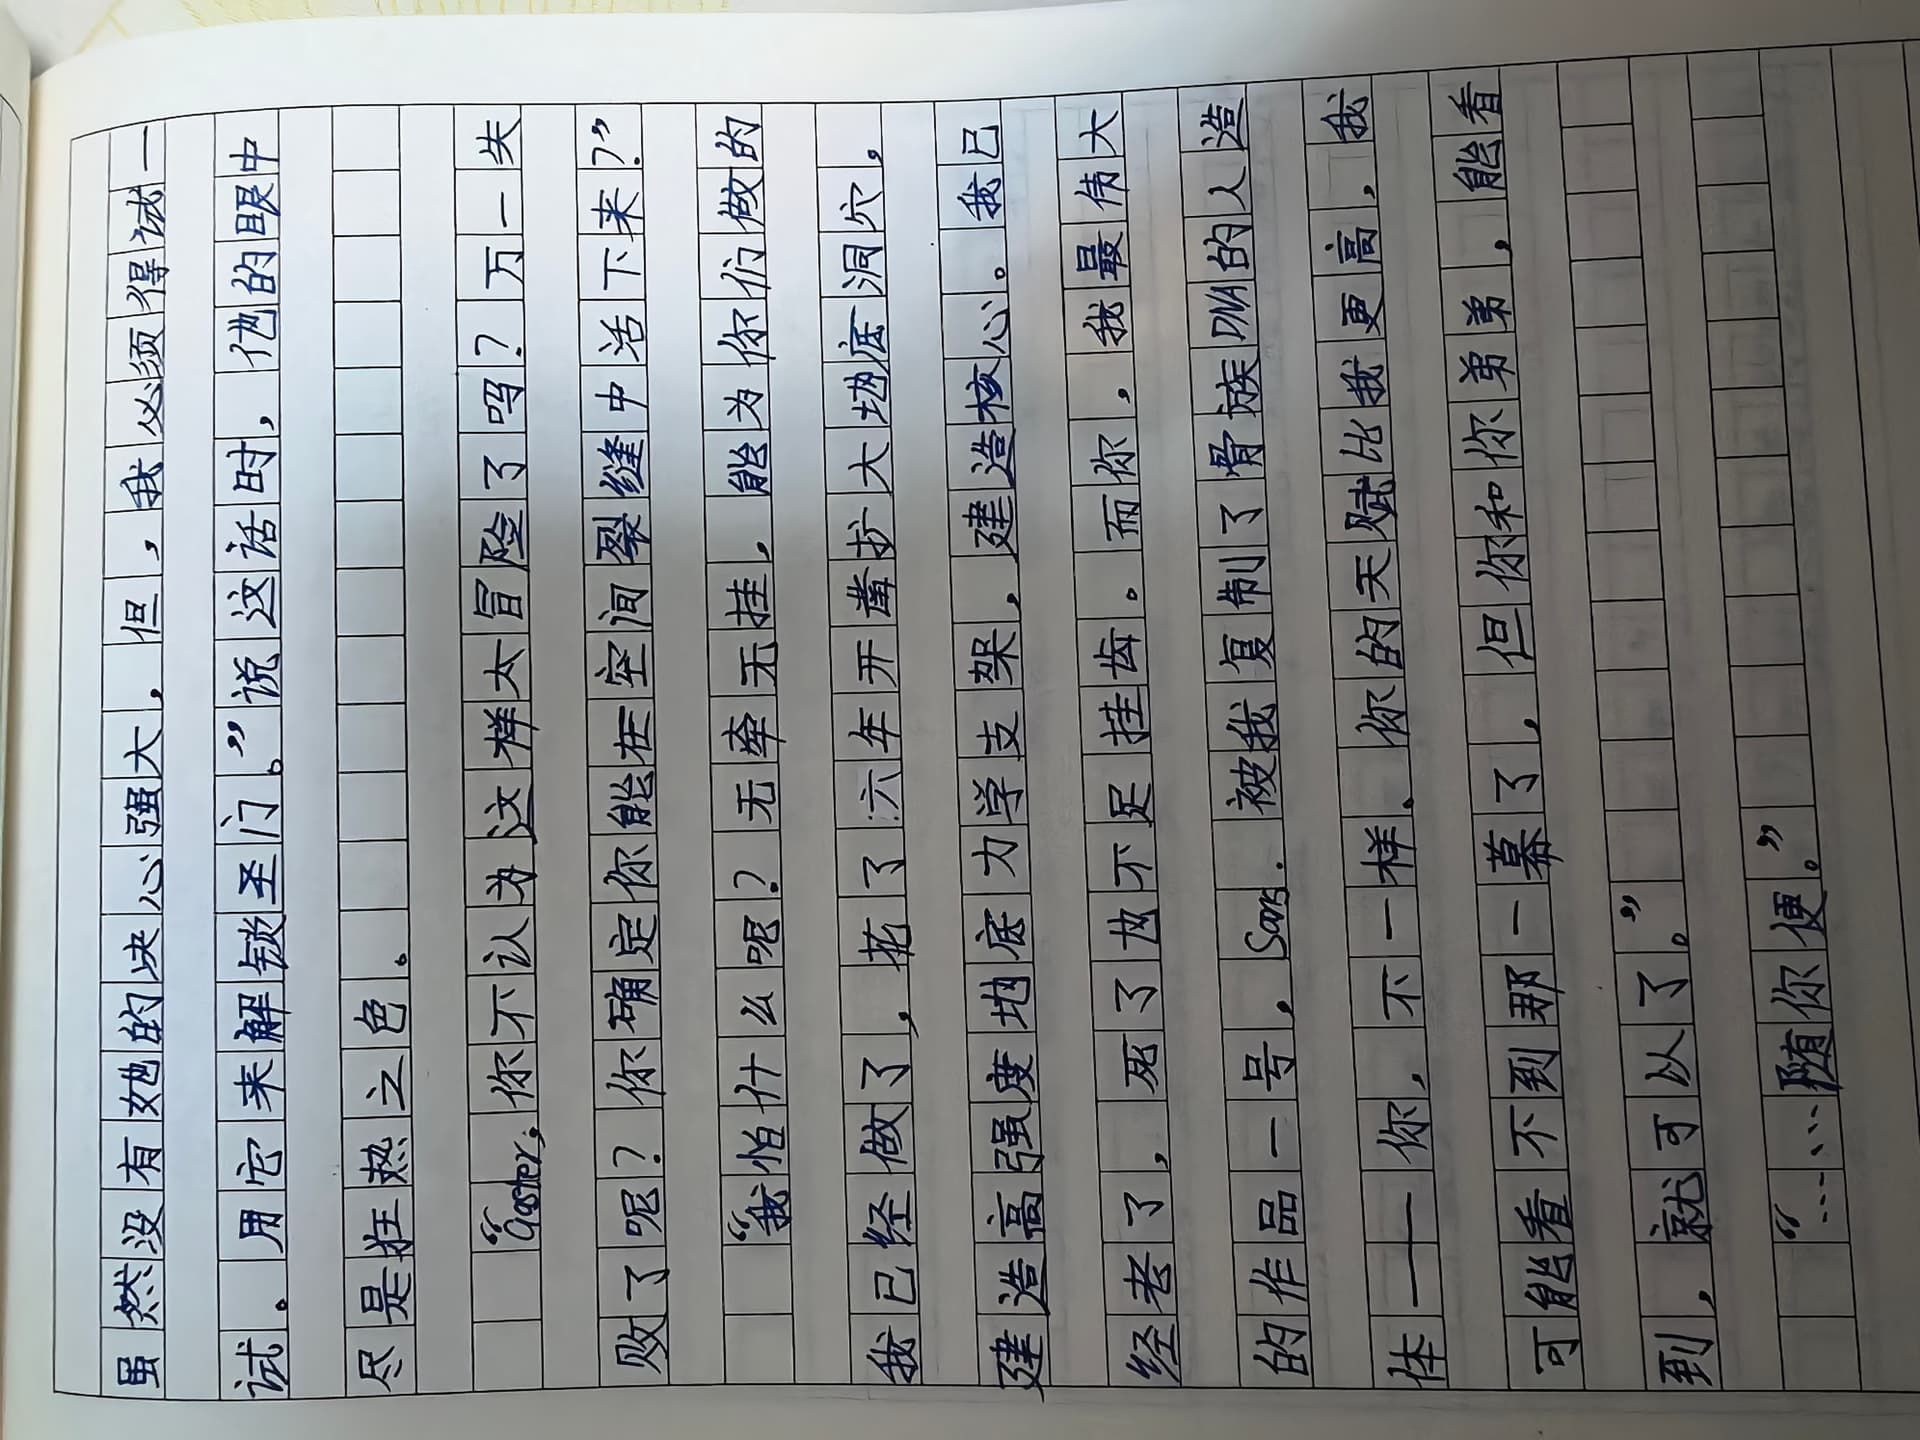 虽然没有她的决心强大,但,我必须得试一
试。用它来解锁圣门。”说这话时,他的眼中
尽是狂热之色。
“Gaster,你不认为这样太冒险了吗?万一失
败了呢?你确定你能在空间裂缝中活下来?”
“我怕什么呢?无牵无挂,能为你们做的
我已经做了,花了六年开凿扩大地底洞穴,
建造高强度地底力学支架,建造核心。我已
经老了,死了也不足挂齿。而你,我最伟大
的作品一号,Sans.被我复制了骨族DNA的人造
体——你,不一样、你的天赋比我更高,我
可能看不到那一幕了,但你和你弟弟,能看
到,就可以了。”
“……随你便。”